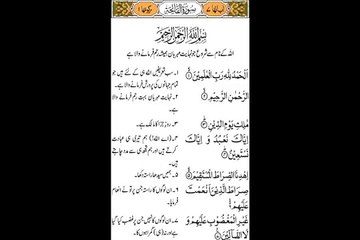 سورة الفاتحة
بسم الله الرحمن الرحيم
اللہ کے نام سے شروع جو نہایت مہربان ہمیشہ رحم فرمانے والا ہے
اَلْحَمْدُ لِلّٰهِ رَبِّ الْعٰلَمِيْنَ
۱۔ سب تعریفیں اللہ ہی کے لئے ہیں جو
تمام جہانوں کی پرورش فرمانے والا ہے
الرَّحْمٰنِ الرَّحِيْمِ
۲۔ نہایت مہربان بہت رحم فرمانے والا ہے
مٰلِكِ يَوْمِ الدِّيْنِ
۳۔ روز جزا کا مالک ہے
اِيَّاكَ نَعْبُدُ وَ اِيَّاكَ
نَسْتَعِيْنُ
۴۔ (اے اللہ!) ہم تیری ہی عبادت
کرتے ہیں اور ہم تجھ ہی سے مدد چاہتے
ہیں
اِهْدِنَا الصِّرَاطَ الْمُسْتَقِيْمَ
۵۔ ہمیں سیدھا راستہ دکھا
صِرَاطَ الَّذِيْنَ اَنْعَمْتَ
عَلَيْهِمْ
۶۔ ان لوگوں کا راستہ جن پر تو نے انعام
فرمایا
غَيْرِ الْمَغْضُوْبِ عَلَيْهِمْ وَ
لَا الضَّآلِّيْنَ
۷۔ ان لوگوں کا نہیں جن پر غضب کیا گیا
ہے اور نہ (ہی) گمراہوں کا